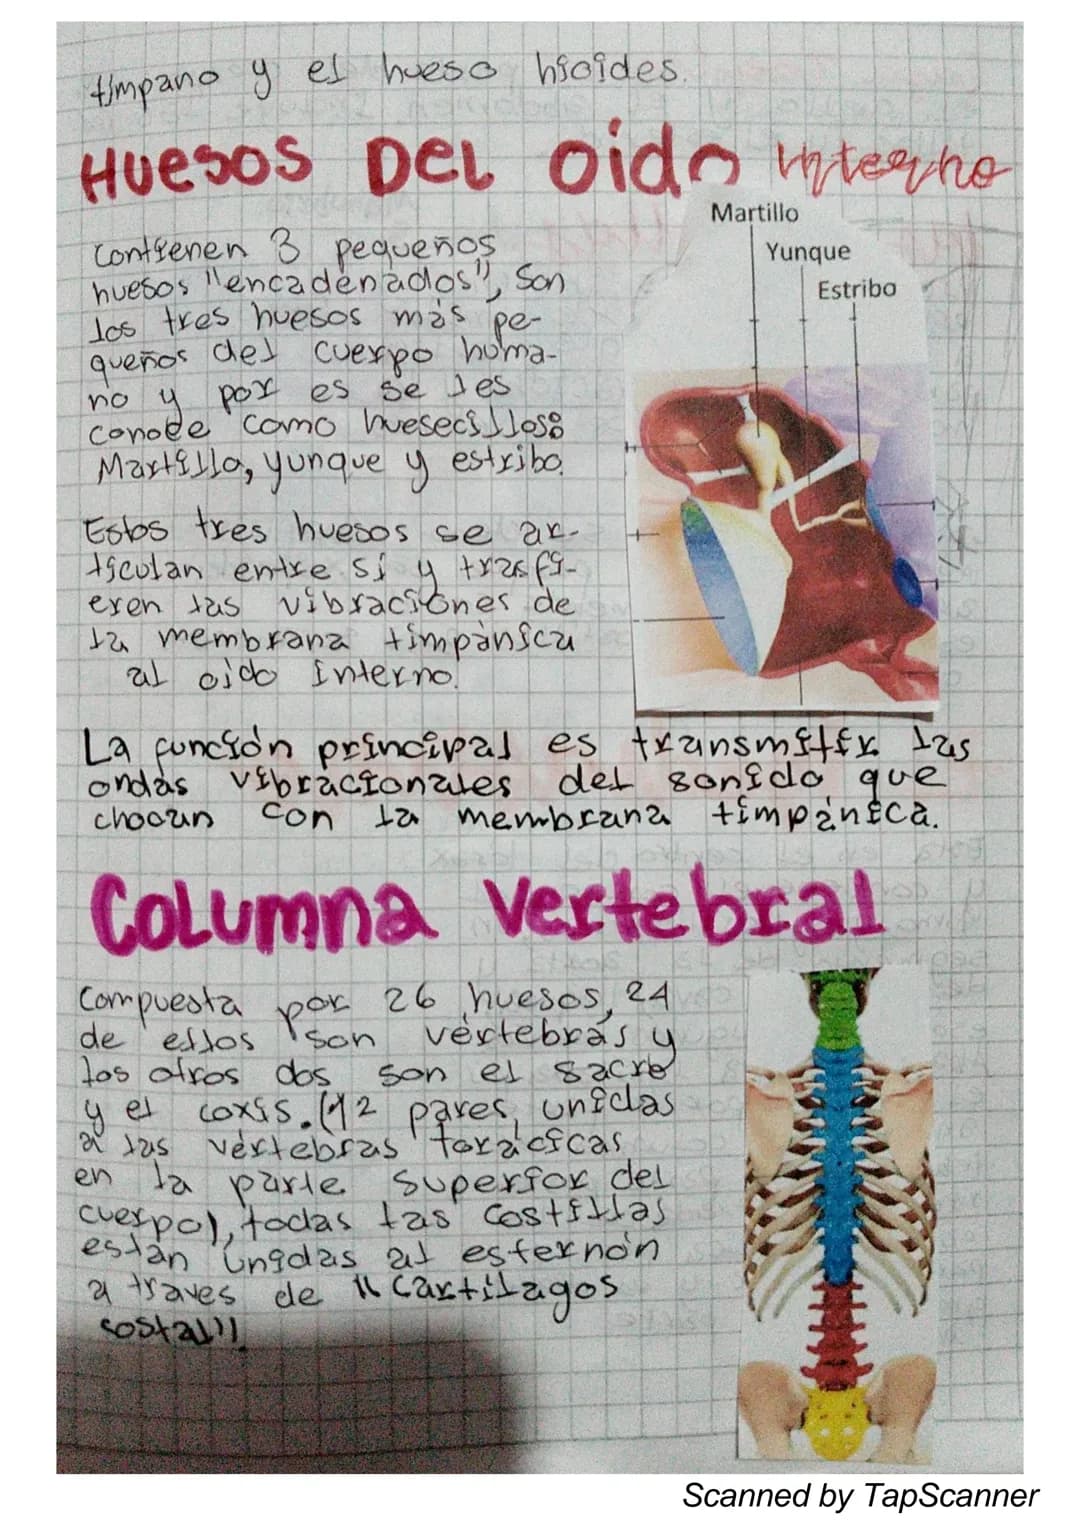 tímpano y el hueso hioides.
HUESOS DEL Oido interno
Martillo
Yunque
Estribo
Contienen 3 pequeños
huesos "encadenados", Son
los tres huesos más pe-
queños del cuerpo huma-
no y por es se les
conoce como huesecillos:
Martillo, yunque y estribo.
Estos tres huesos se ar-
ticulan entre sí y trasfi-
eren las vibraciones de
la membrana timpànica
al oido interno.
La función principal es transmitir las
ondas vibracionales del sonido que
chocan con la membrana timpànica.
Columna Vertebral
Compuesta por 26 huesos, 24
de ellos son vértebras y
los otros dos son el sacro
y el coxis. (12 pares, unidas
a las vértebras torácicas
en la parte superior del
cuerpo), todas las costillas
están unidas al esternón
a traves de "Cartilagos
costal"
Scanned by TapScanner